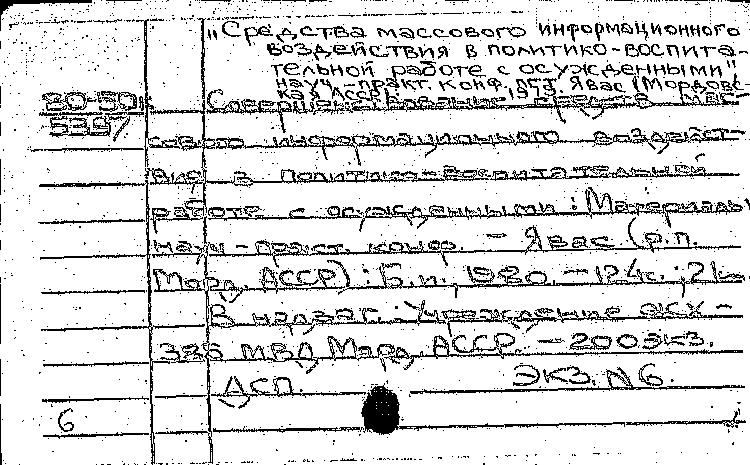 „Средства массового информационного
воздействия в политико-воспита-
тельной работе с осужденными"
науч.-практ. конф., пгт. Явас (Мордовс-
кая АССР).
80-50к Совершенствование средств мас-
5397
сового информационного воздейст-
вия в политико-воспитательной
работе с осужденными: Материалы
науч-практ. конф. - Явас (р.п.
Морд. АССР): Б.и., 1980. - 124с.; 21см.
В надзаг.: Учреждение ЖХ-
385 МВД Морд. АССР. - 200экз.
ДСП. ЭКЗ. N6.
6